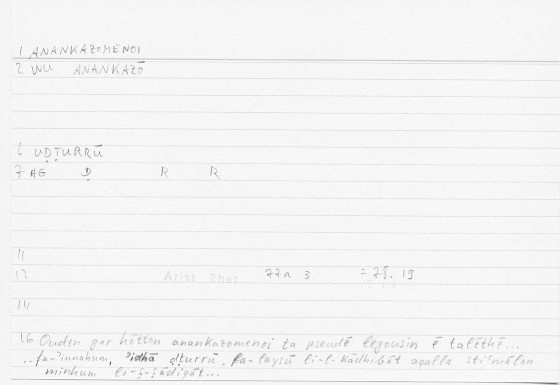 1 ANANKAZOMENOI
2 WU ANANKAZŌ
6 UḌṬURRŪ
7 AG Ḍ R R
11
12 Arist Rhet 77a 3 = 78, 19
14
16 Ouden gar hētton anankazomenoi ta pseudē legousin ē talēthē...
..fa-'innahum, 'idhā ḍṭurrū. fa-laysū li-l-kādhibāt aqalla stiʿmālan
minhum li-ṣ-ṣādiqāt...